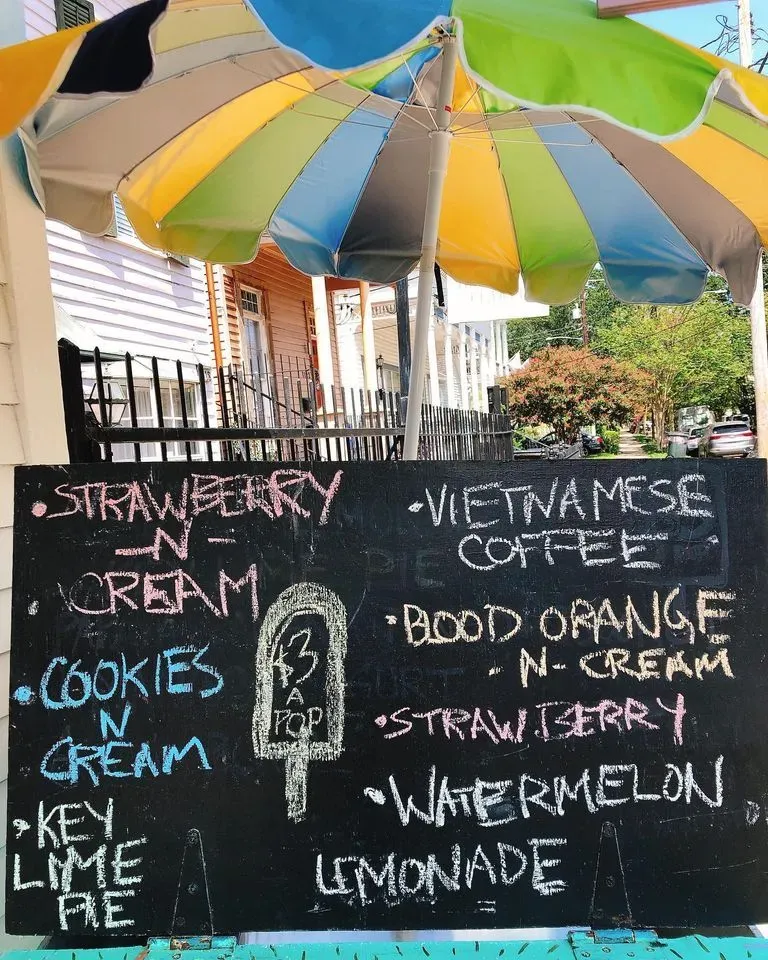 • STRAWBERRY
-N-
CREAM
• COOKIES
N
CREAM
• KEY
LYME
PIE
$3
A
POP
• VIETNAMESE
COFFEE
• BOOD ORANGE
-N- CREAM
• STRAWBERRY
• WATERMELON
LEMONADE